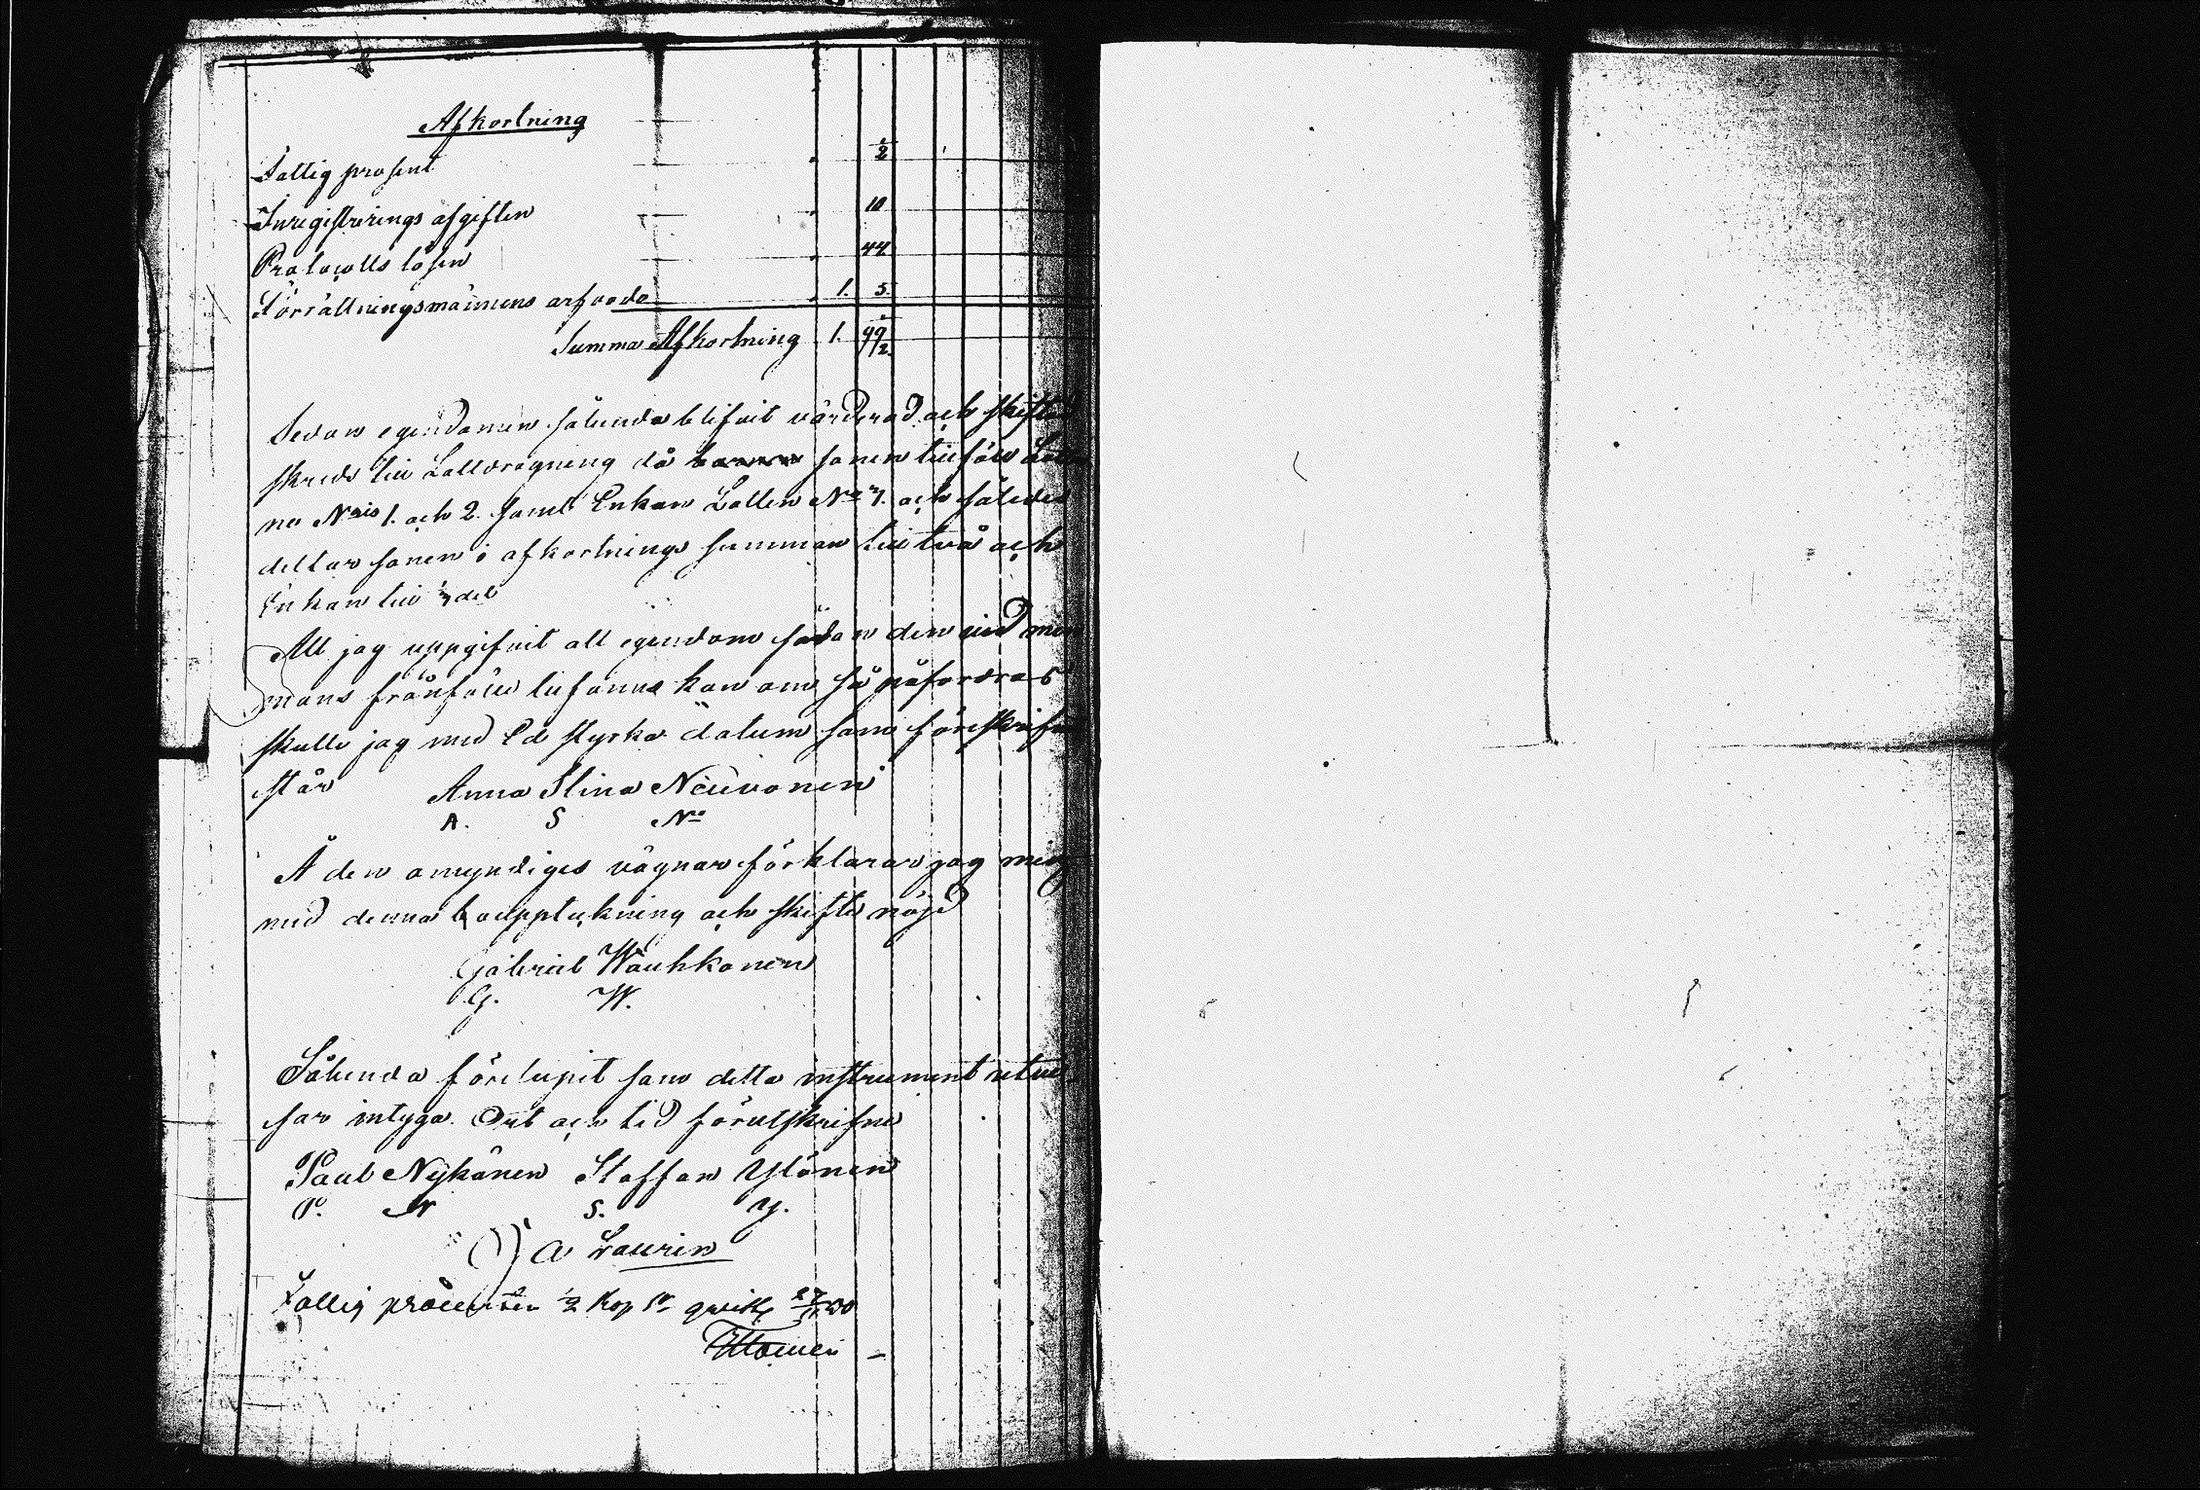 Afkortning
Fattig prosent ½
Inregistrerings afgiften 10
Protocolls lösen 44
Förrättningsmännens arfvode 1. 5.
Summa Afkortning 1. 99/2
Sedan egendomen sålunda blifvit värderad och skiftad
skreds till Lottdragning då sonen tillföll Lotter
ne N:ris 1. och 2. samt Enkan Lotten N:o 7. och således
deltar sonen i afkortnings summan till två och
Enkan till ⅓ del
Att jag uppgifvit all egendom sådan den vid min
mans frånfälle tilfanns kan om så påfordras
skulle jag med Ed styrka datum som föreskrifvit
står Anna Stina Neuvonen
A. S N:
Å den omyndiges vägnar förklarar jag mig
med denna bouppteckning och skifte nöjd
Gabriel Wauhkonen
G. W.
Sålunda förelupit som detta instrument utvi
sar intyga. Ort och tid förutskrifne
Paul Nykänen Staffan Ylönen
P. N S. Y.
A Laurin
Fattig procenten ½ Kop Sr qvitt